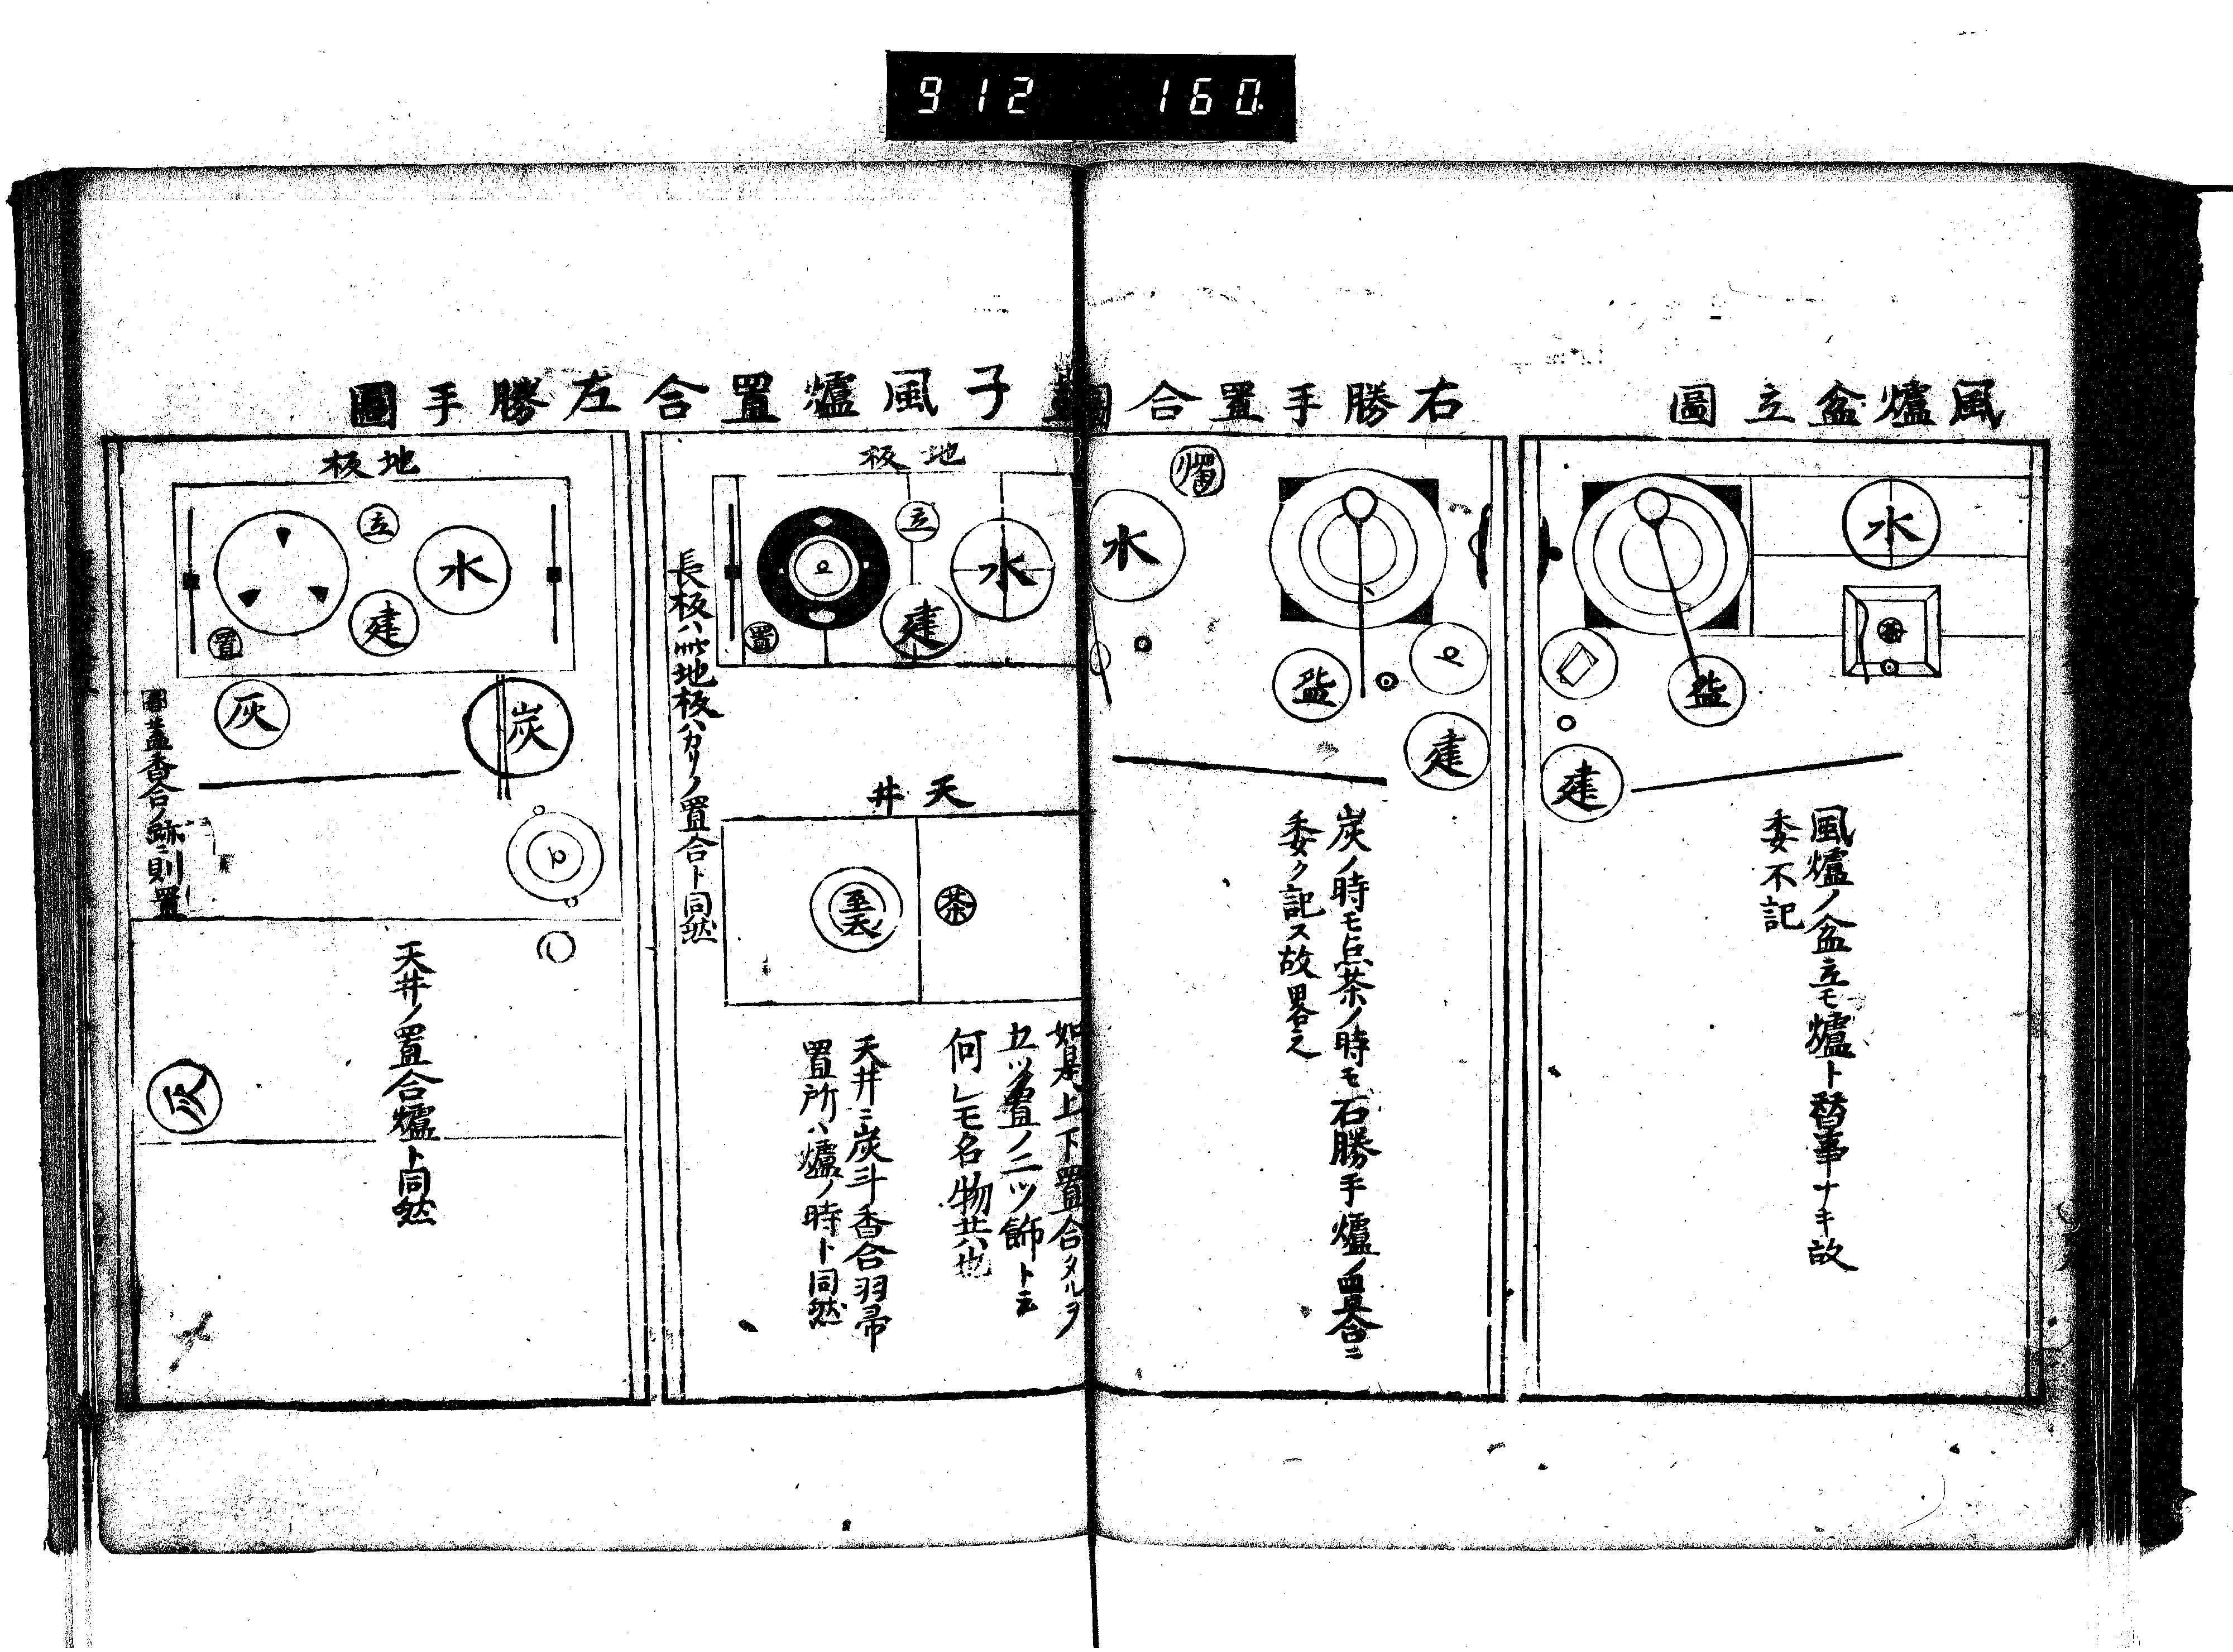 912 160
風爐盆立圖
水
茶
盆
建
風爐ノ盆立モ爐ト替事ナキ故
委不記
右勝手置合圖
燭
水
建
炭ノ時モ点茶ノ時モ右勝手爐ノ置合ニ
委ク記ス故畧之
臺子風爐置合左勝手圖
地板
立
水
建
置
長板ハ此地板ハカリノ置合ト同然
天井
茶
如是上下置合タルヲ
五ツ置ノ二ツ飾ト云
何レモ名物共也
天井ニ炭斗香合羽帚
置所ハ爐ノ時ト同然
地板
立
水
建
置
灰
炭
蓋香合ノ跡ニ則置
灰
天井ノ置合爐ト同然